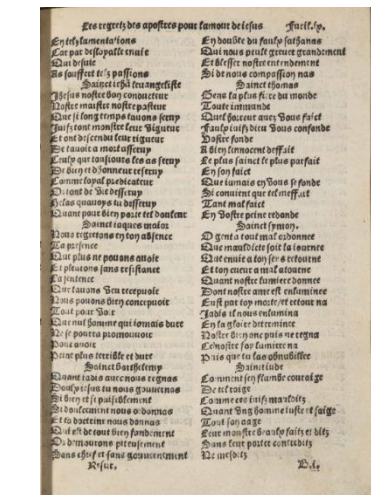 Les regretz des apostres pour lamour de iesus Fueil.
En telz lamentations
Car par desloyalle
Qui
As souffert telz passions
Sainct iehā leuangeliste
Jhesus nostre bon conducteur
Nostre maistre nostre pasteur
Que si long temps tauons seruy
Juifz tont monstre leur rigueur
Et ont descendu leur rigueur
De tauoir a mort asseruy
Celuy qui tousiours les as seruy
De bien et dhonneur
Comme loyal predicateur
Ilz tont de vie desseruy
Helas quauoys tu desseruy
Quant pour bien porte tel douleur
Sainct iaques maior
Nous regretons en ton absence
Ta presence
Que plus ne pouons auoir
Et pleurons sans resistance
La sentence
Que tauons veu recepuoir
Nous pouons bien conceuoir
Tout pour voir
Que nul homme qui iamais dure
Ne se pourra promouuoir
Pour auoir
Peine plus terrible et dure
Sainct barthelemy
Quant iadis auec nous regnas
Doulx iesus tu nous gouuernas
Si bien et si paisiblement
Si doulcement nous ordonnas
Et ta doctrine nous donnas
Qui est de tout bien fondement
Or demourons piteusement
Sans chief et sans gouuernement
En doubte du faulx sathanas
Qui nous peult greuer grandement
Et blesser nostre entendement
Si de nous compassion nas
Sainct thomas
Gens la plus fiere du monde
Toute immunde
Quel horreur auez vous faict
Faulx iuifz dieu vous confonde
Vostre fonde
A bien linnocent deffait
Le plus sainct le plus parfait
En son faict
Que iamais en vous se fonde
Si conuient que tel meffait
Tant mal faict
En vostre peine redonde
Sainct symon.
O gent a tout mal ordonnee
Que mauldicte soit la iournee
Que enuie a ton ser retournee
Et ton cueur a mal atournee
Quant nostre lumiere donnee
Dont nostre ame est enluminee
Est par toy morte et
Jadis il nous enlumina
En la gloire determinee
Nostre bien onc puis ne regna
Ne nostre ior lumiere na
Puis que tu las obnubilee
Sainct iude
Comment ses flambe couraige
De tel raige
Comme ces iuifz maulditz
Quant vng homme iuste et saige
Tout son aage
Leur monstre beaulx faitz et ditz
Sans leur porter contreditz
Ne mesditz